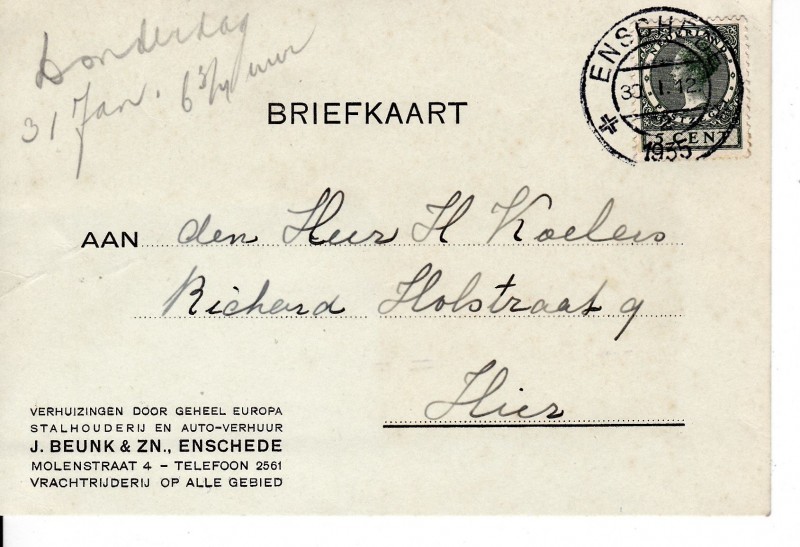 Donderdag
31 Jan. 6 3/4 uur
BRIEFKAART
ENSCHEDE
30 1.12
1935
NEDERLAND
5 CENT
AAN den Heer H Koelers
Richard Holstraat 9
Hier
VERHUIZINGEN DOOR GEHEEL EUROPA
STALHOUDERIJ EN AUTO-VERHUUR
J. BEUNK & ZN., ENSCHEDE
MOLENSTRAAT 4 – TELEFOON 2561
VRACHTRIJDERIJ OP ALLE GEBIED